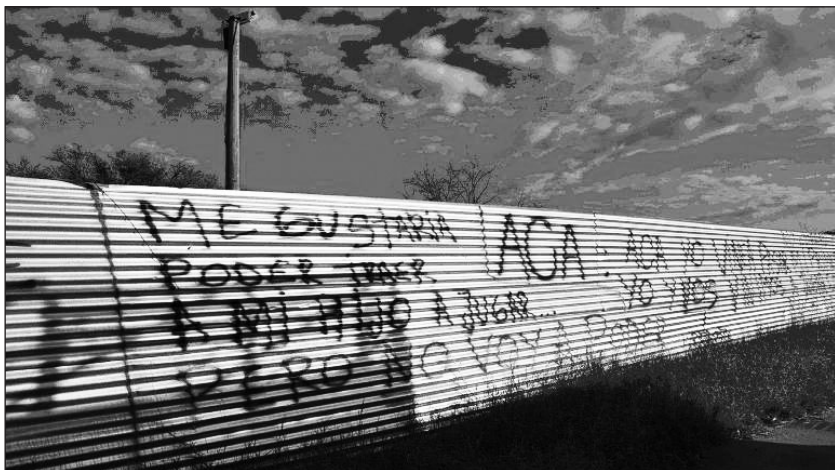 ME GUSTARIA
PODER TRAER
A MI HIJO A JUGAR...
PERO NO VOY A PODER
ACA :
ACA YO
YO Y LOS